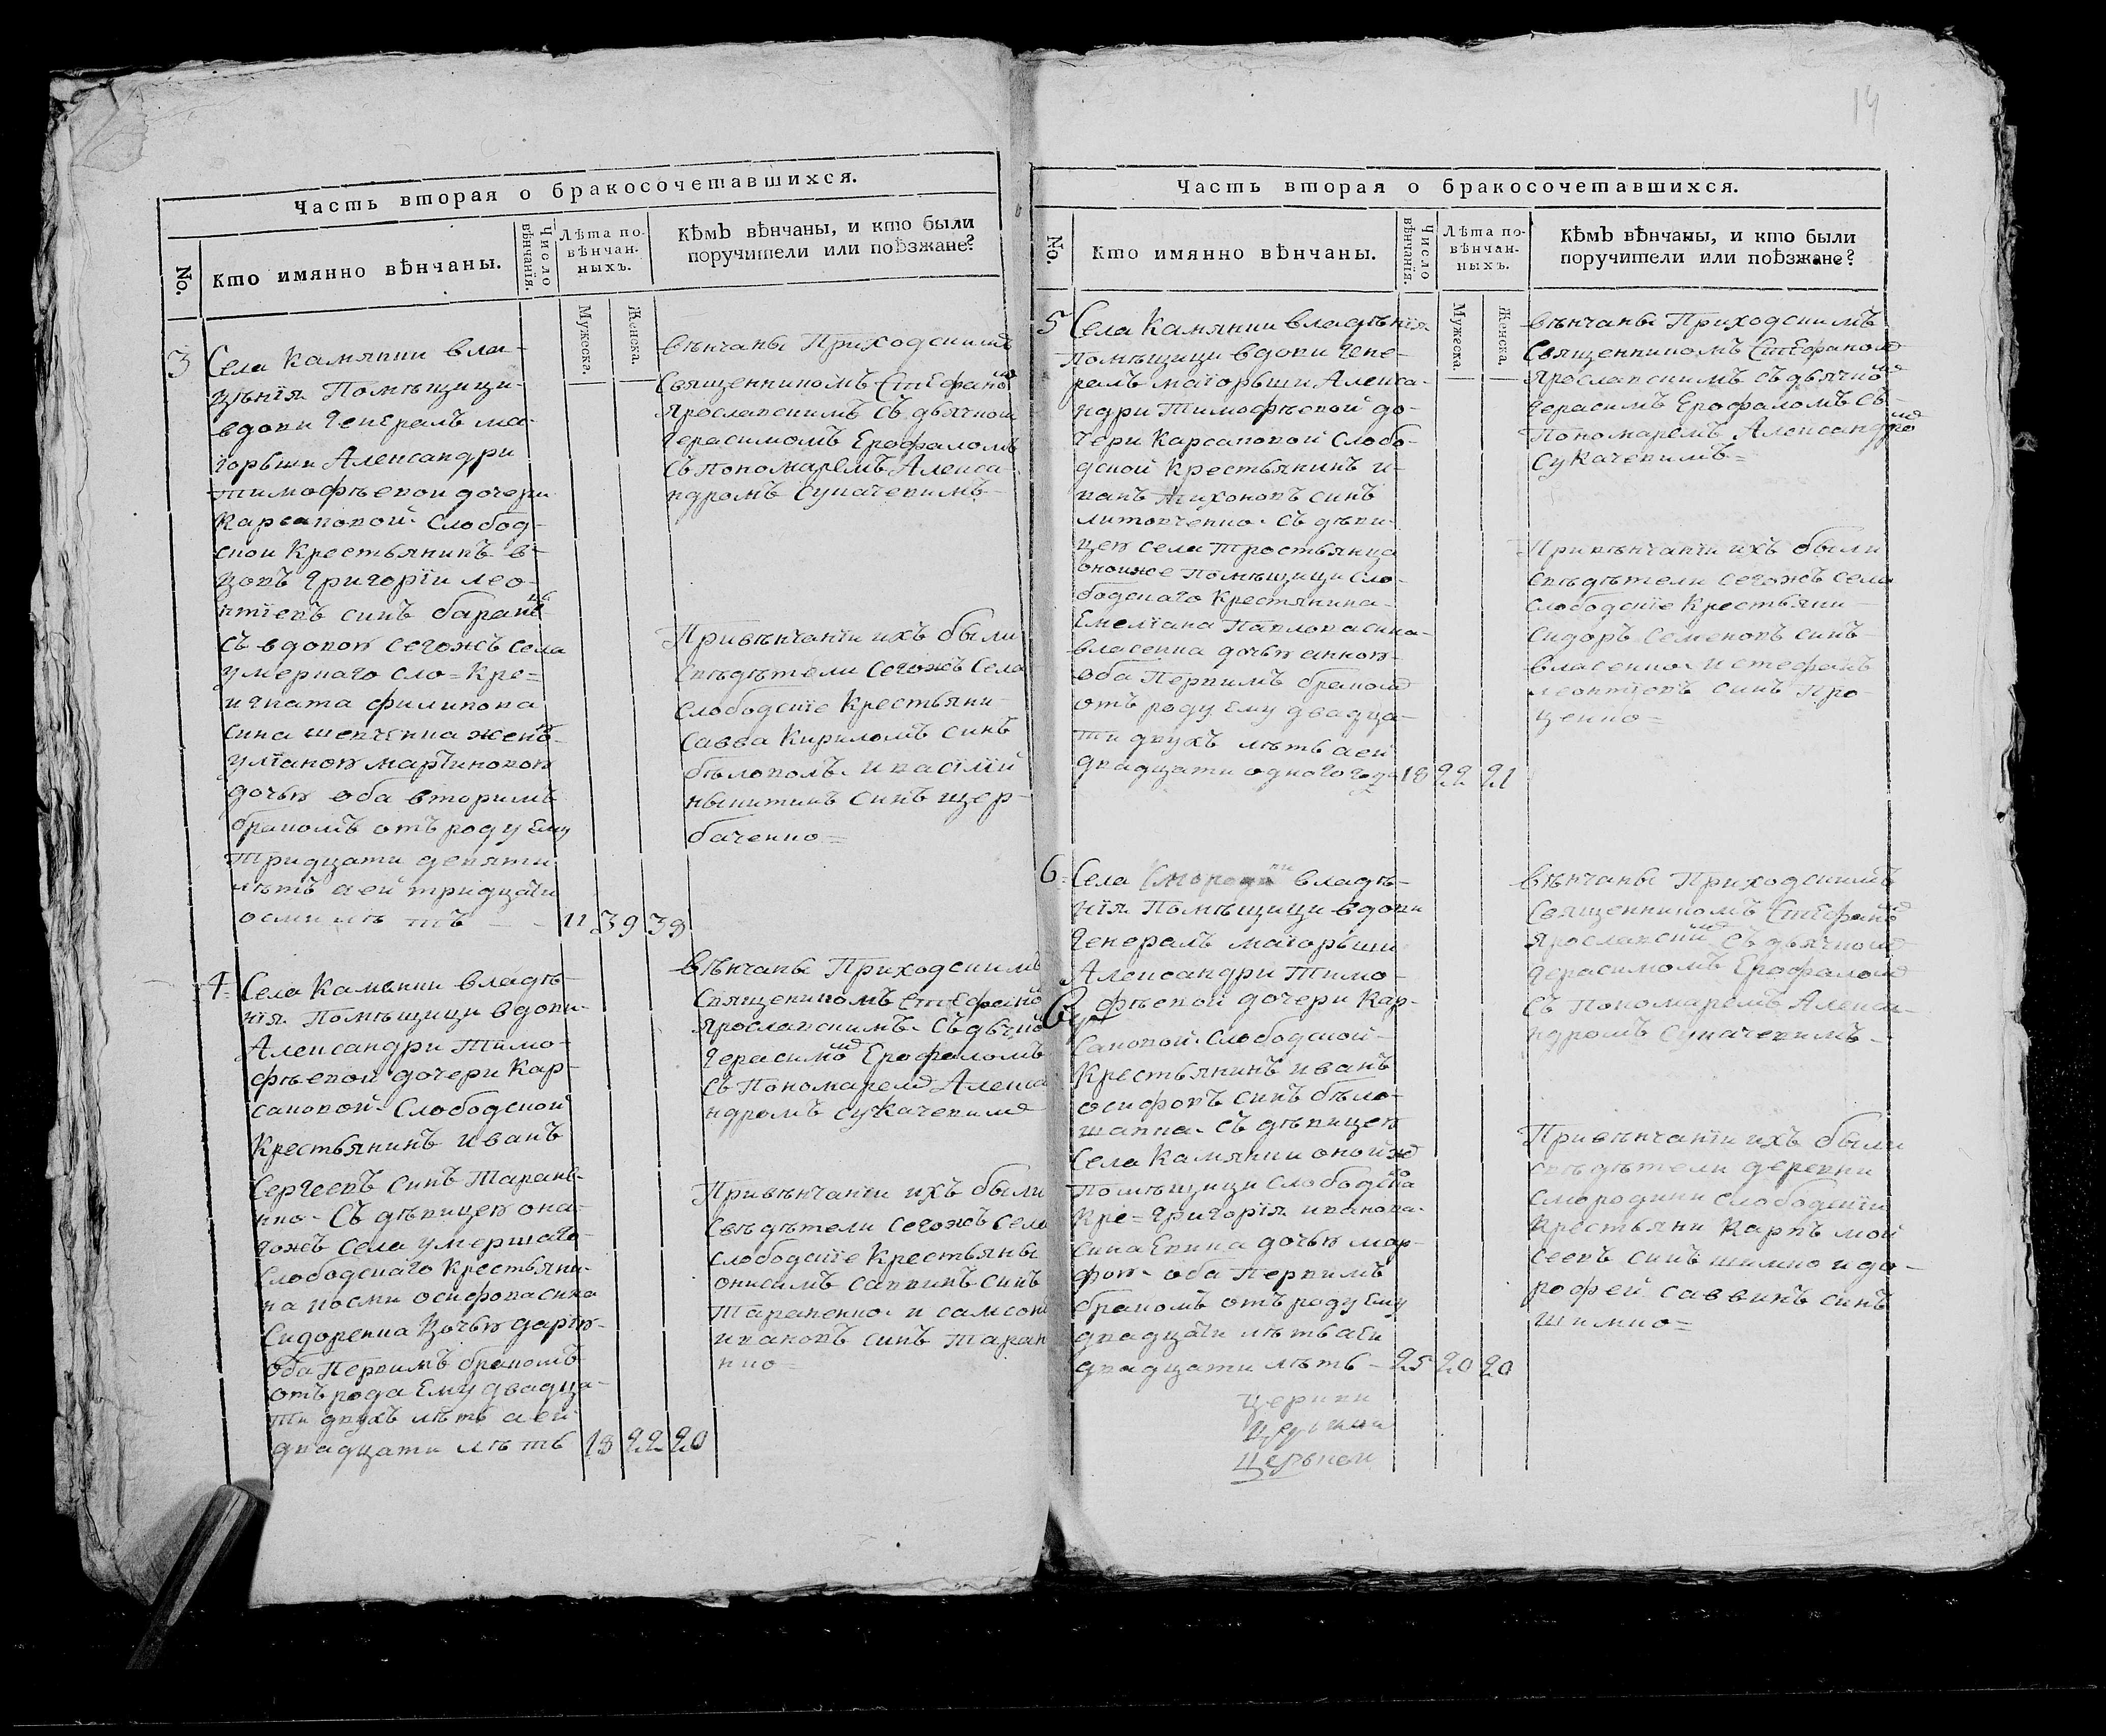 Часть вторая о бракосочетавшихся.
No.
Кто имянно вѣнчаны.
Число вѣнчанія.
Лѣта повѣнчанныхъ.
Мужеска.
Женска.
Кѣмъ вѣнчаны, и кто были
поручители или поѣзжане?
3
Села Камянки вла-
дѣнія Помѣщици-
вдови Генералъ ма-
іорьши Александри
тимофѣевой дочери
Карсаковой Слобод-
ской Крестьянинъ в-
довъ Григорій лео-
нтіевъ синъ
съ вдовою Сегожъ села
умершаго сло= Кре=
игната филипова
сина шевченка женою
уліаною мартиновою
дочью оба вторимъ
бракомъ отъ роду Ему
Тридцати девяти
лѣтъ а ей тридцати
осми лѣтъ — 11 39 38
вѣнчаны Приходскимъ
Священникомъ Стефаномъ
Ярославскимъ Съ дьячкомъ
Герасимомъ Ерофаломъ
съ пономаремъ Алекса-
ндромъ Сукачевимъ
При вѣнчаніи ихъ были
свѣдѣтели Сегожъ Села
Слободскіе Крестьяни-
Савва Кириловъ Синъ
бѣловолъ И василій
никитинъ Синъ щер-
баченко=
4.
Села Камянки владѣ-
нія Помѣщици вдови-
Александри Тимо-
фѣевой дочери Кар-
саковой Слободской
Крестьянинъ Иванъ
Сергѣевъ Синъ Таране-
нко- Съ дѣвицею она-
гожъ Села умершаго
Слободскаго Крестьяни-
на космы осифова сина
Сидоренка дочью даріею-
Оба Первимъ бракомъ
отъ рода Ему двадца-
ти двухъ лѣтъ а ей
двадцати лѣтъ 18 22 20
вѣнчаны Приходскимъ
Священникомъ Стефаномъ
Ярославскимъ Съ дьячкомъ
Герасимомъ Ерофаломъ
Съ Пономаремъ Алекса
ндромъ Сукачевимъ
При вѣнчаніи ихъ были
Свѣдѣтели Сегожъ Села
Слободскіе Крестьяны
онисимъ Саввинъ Синъ
Тараненко и самсонъ
ивановъ синъ Таране
нко=
14
Часть вторая о бракосочетавшихся.
No.
Кто имянно вѣнчаны.
Число вѣнчанія.
Лѣта повѣнчанныхъ.
Мужеска.
Женска.
Кѣмъ вѣнчаны, и кто были
поручители или поѣзжане?
5
Села Камянки владѣнія
помѣщици вдови Гене-
ралъ маіорьши Алекса-
ндри Тимофѣевой до-
чери Карсаковой Слобо-
дской Крестьянинъ и-
ванъ Тихоновъ синъ
литовченко Съ дѣви-
цею села Тростьянца
оноиже Помѣщици Сло-
бодскаго Крестянина
Емеліана Павлова сина-
власенка дочью анною-
Оба Первимъ бракомъ
отъ роду Ему двадца-
ти двухъ лѣтъ а ей
двадцати одного году 18 22 21
вѣнчаны Приходскимъ
Священникомъ Стефаномъ
Ярославскимъ Съ дьячкомъ
Герасимъ Ерофаломъ Съ-
Пономаремъ Александромъ
Сукачевимъ=
При вѣнчаніи ихъ были
свѣдѣтели Сегожъ Села
Слободскіе Крестьяни-
Сидоръ Семеновъ синъ
власенко И стефанъ
леонтіевъ синъ Про-
ценко=
6.
Села владѣ-
нія Помѣщици вдови
Генералъ маіорьши
Александри Тимо-
фѣевой дочери Кар-
саковой Слободской
Крестьянинъ иванъ
осифовъ Синъ бѣло-
шапка Съ дѣвицею
Села Камянки оной же
Помѣщици Слободска
Кре= Григорія иванова
сина дочью мар-
фою оба Первимъ
бракомъ отъ роду Ему
двадцати лѣтъ а ей
двадцати лѣтъ - 25 20 20
церкви
Церькви
вѣнчаны Приходскимъ
Священникомъ Стефаномъ
Ярославскимъ Съ дьячкомъ
Герасимомъ Ерофаломъ
Съ Пономаремъ Алекса-
ндромъ Сукачевимъ-
При вѣнчаніи ихъ были
свѣдѣтели деревни
Смородини Слободскіи
Крестьяни Карпъ мой
сеевъ синъ шимко и до-
рофей саввинъ синъ
шимко=